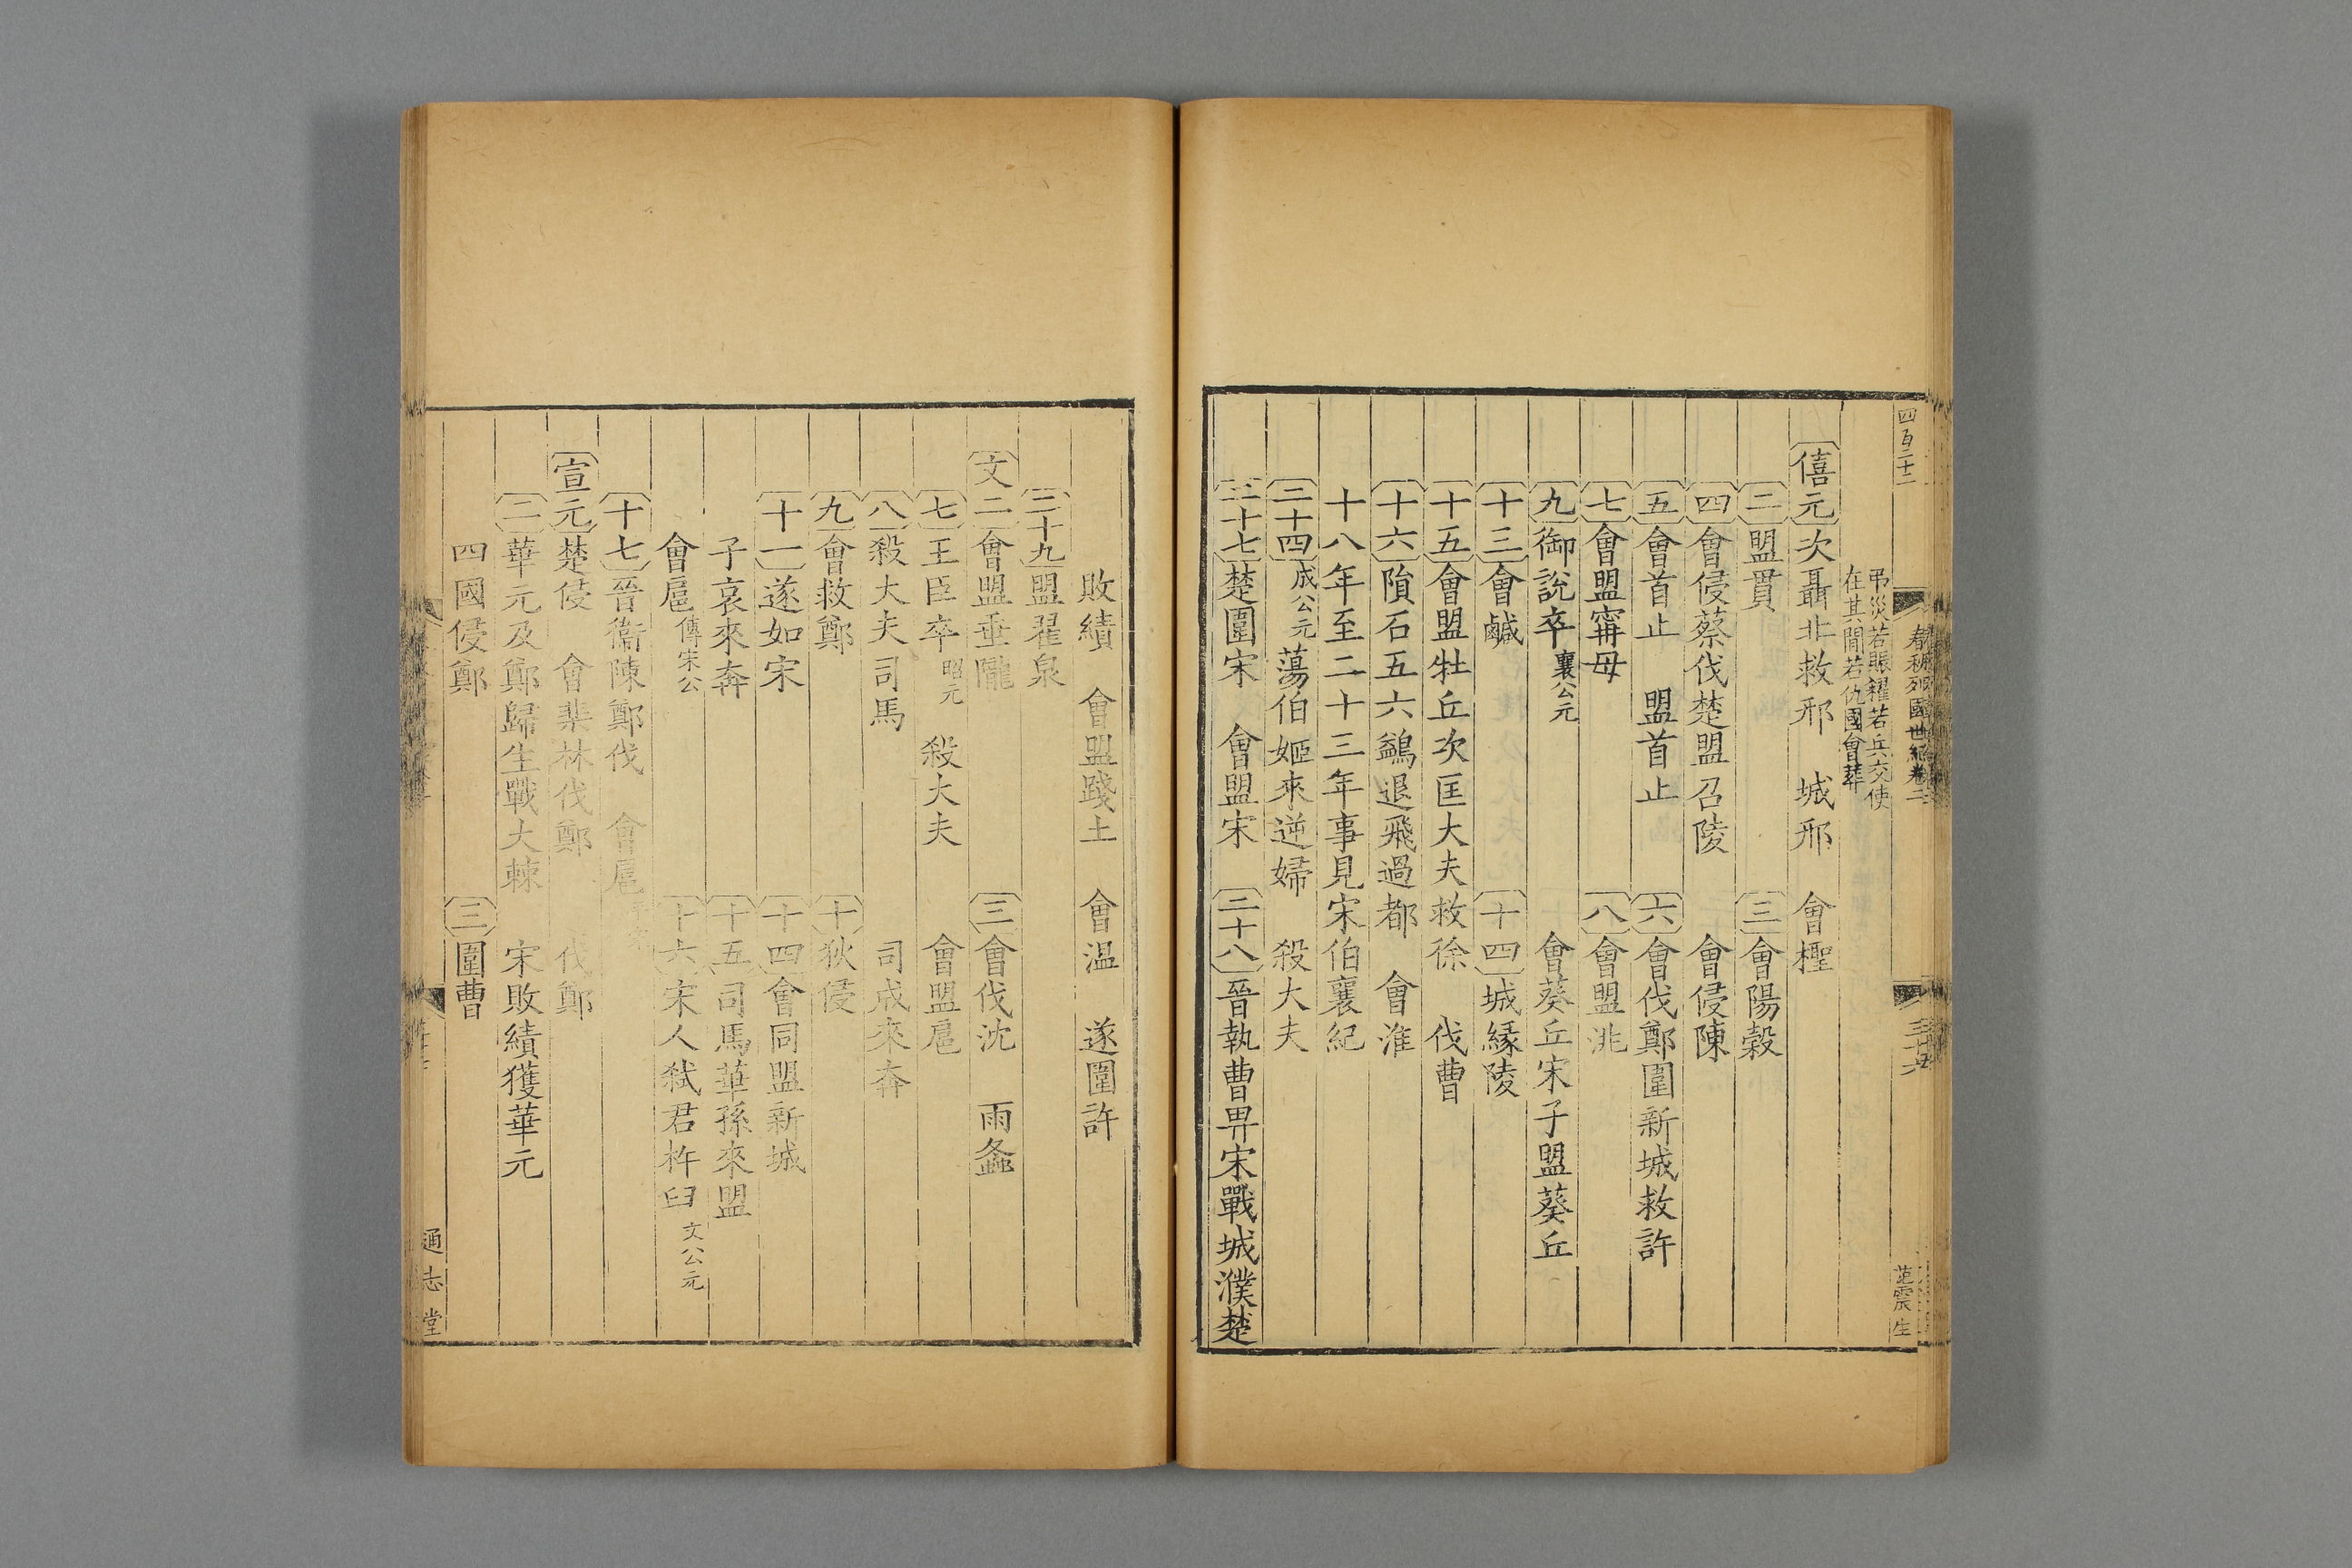 四百二十二
春秋列國世紀卷二
三十六
范震生
弔災若賑糴若兵交使
在其間若仇國會葬
僖元次聶北救邢　城邢　會檉
二盟貫　三會陽穀
四會侵蔡伐楚盟召陵　會侵陳
五會首止　盟首止　六會伐鄭圍新城救許
七會盟甯母　八會盟洮
九御說卒襄公元　會葵丘宋子盟葵丘
十三會鹹　十四城緣陵
十五會盟牡丘次匡大夫救徐　伐曹
十六隕石五六鷁退飛過都　會淮
十八年至二十三年事見宋伯襄紀
二十四成公元　蕩伯姬來逆婦　殺大夫
二十七楚圍宋　會盟宋　二十八晉執曹畀宋戰城濮楚
敗績　會盟踐土　會溫　遂圍許
二十九盟翟泉
文二會盟垂隴　三會伐沈　雨螽
七王臣卒昭元　殺大夫　會盟扈
八殺大夫司馬　司成來奔
九會救鄭　十狄侵
十一遂如宋　十四會同盟新城
子哀來奔　十五司馬華孫來盟
會扈傳宋公　十六宋人弒君杵臼文公元
十七晉衞陳鄭伐　會扈
宣元楚侵　會棐林伐鄭　伐鄭
二華元及鄭歸生戰大棘　宋敗績獲華元
四國侵鄭　三圍曹
通志堂